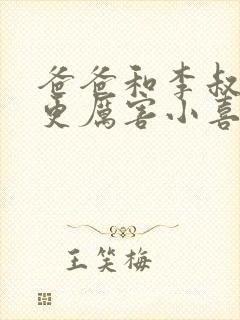 爸爸和李叔
更厉害小喜
王笑梅